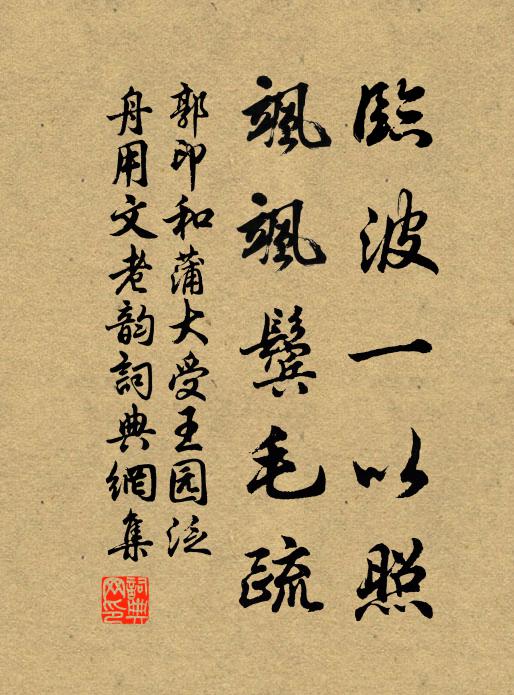 臨波一以照
颯颯鬢毛疏
郭印和蒲大受王园泛
舟用文老韵詞典網集
詞典
网印